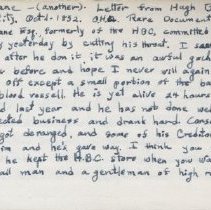 ane - (another). Letter from Hugh
ity, Oct. 1852. Rare Document
ane Esq. formerly of the HBC, committed
yesterday by cutting his throat. I saw
after he don it, it was an awful
before and hope I never will again
off except a small portion of the ba
blood vessell. He is yet alive 24 hours
nd last year and he has not done we
ected business and drank hard. Cons
got deranged, and some of his Creditor
im and he's gave way. I think you
he kept the H.B.C. store when you wa
all man and a gentleman of high